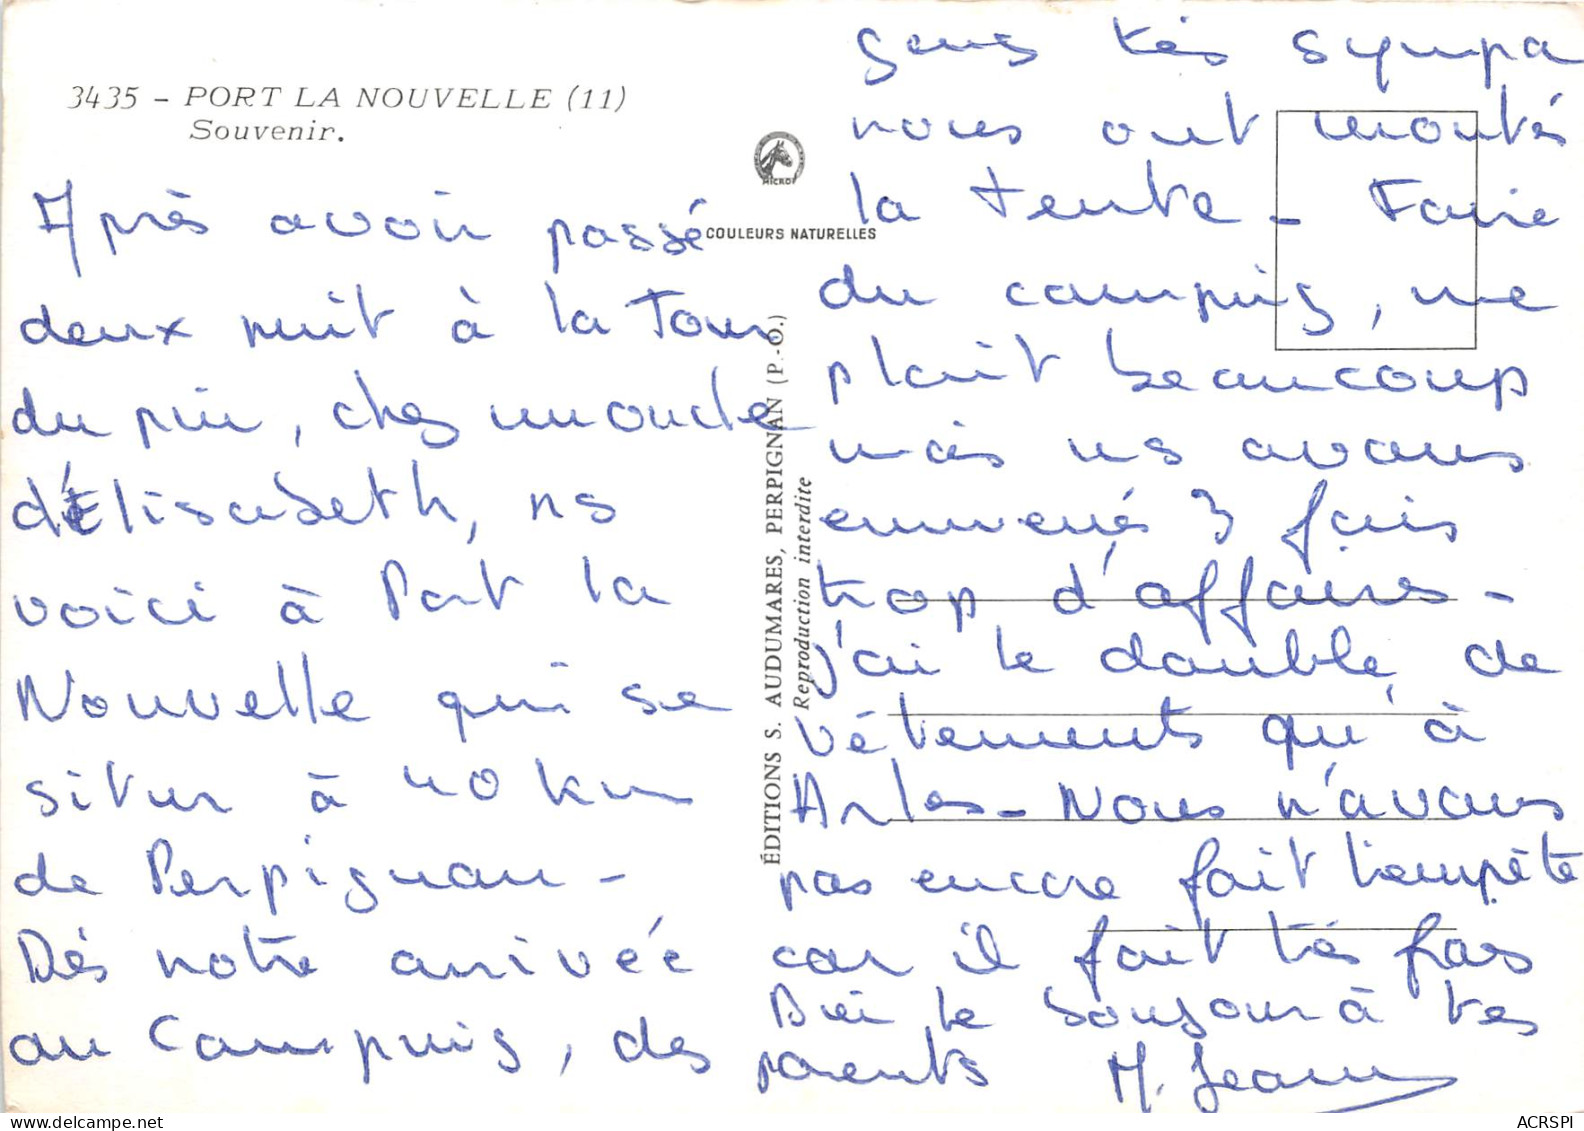 3435 - PORT LA NOUVELLE (11)
Souvenir.
Après avoir passé
deux nuit à la Tour
du pin, chez
d'Elisabeth, ns
voici à Port la
Nouvelle qui se
situr à 40 km
de Perpignan -
Dés notre arrivée
au Camping, des
gens tés sympa
nous ont montés
la tente - Faire
du camping, me
plait beaucoup
mais ns avons
emmenés 3 fois
trop d'affaires -
j'ai le double de
vêtements qu'à
Arles - Nous n'avons
pas encore fait
car il fait tés
Bien le bonjour à tes
parents M. Jeanne
MICRO
COULEURS NATURELLES
ÉDITIONS S. AUDUMARES, PERPIGNAN (P.-O.)
Reproduction interdite
ACRSPI
delcampe.net